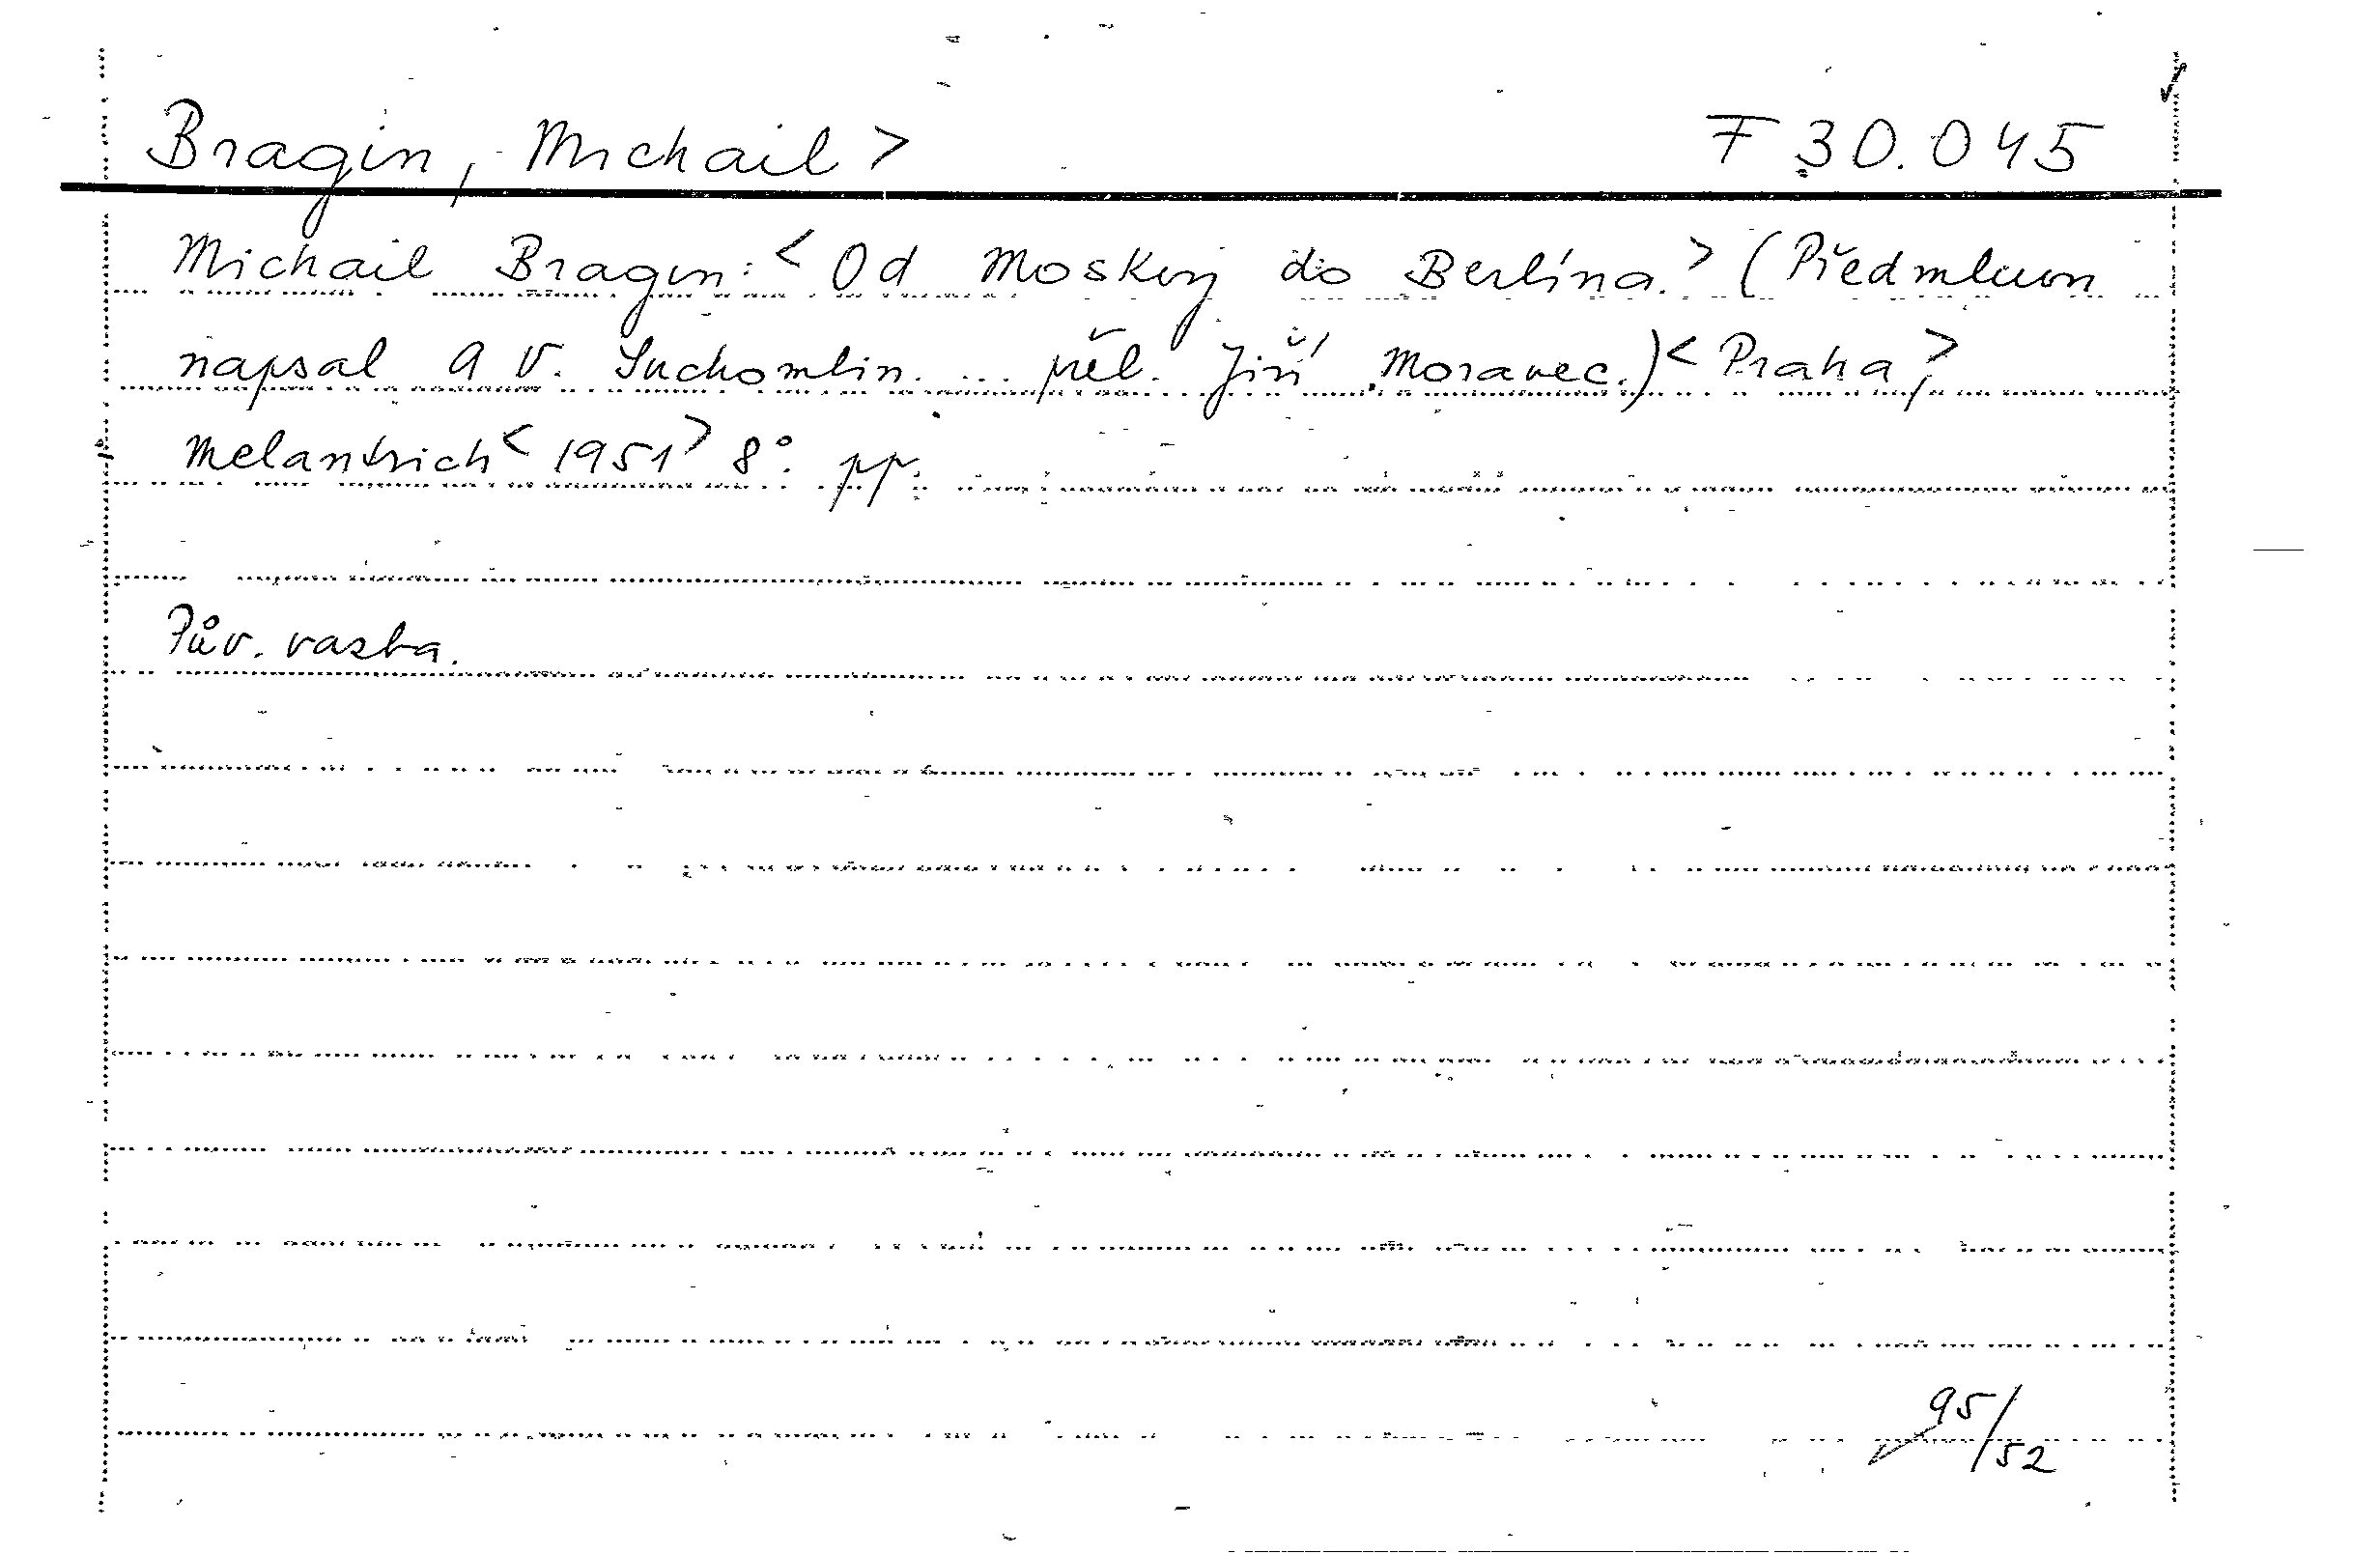 Bragin, Michail > F 30.045
Michail Bragin: < Od Moskvy do Berlína. > (Předmluvu
napsal A V. Suchomlin. ... přel. Jiří Moravec.) < Praha, >
Melantrich < 1951 > 8°. pp.
Pův. vazba.
95/52